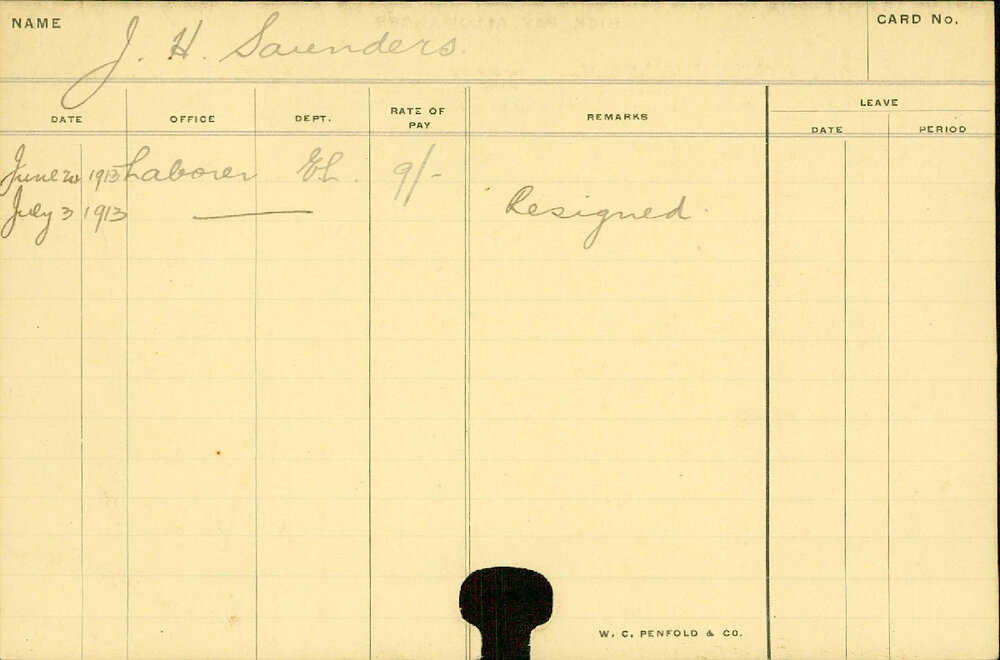 NAME J. H. Saunders. CARD No.
LEAVE
DATE OFFICE DEPT. RATE OF PAY REMARKS DATE PERIOD
June 20 1913 Laborer El. 9/-
July 3 1913 Resigned.
W. C. PENFOLD & CO.